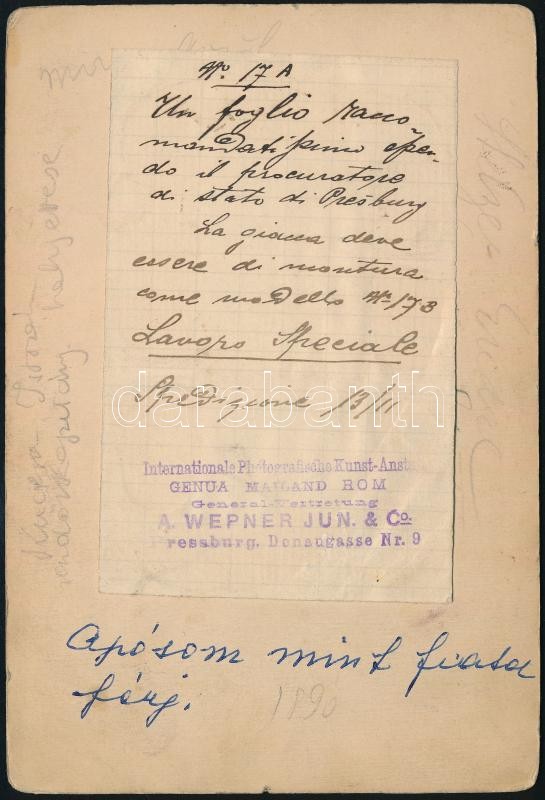 No. 17 A
Un foglio racco-
mandatissimo essen-
do il procuratore
di stato di Presburg
La giacca deve
essere di montura
come modello No 17 B
Lavoro Speciale
Spedizione 13/11
darabanth
Internationale Photografische Kunst-Anst
GENUA MAILAND ROM
General-Vertretung
A. WEPNER JUN. & Co.
Pressburg, Donaugasse Nr. 9
Apósom mint fiatal
férj.
1890
rendőrkapitány helyettese